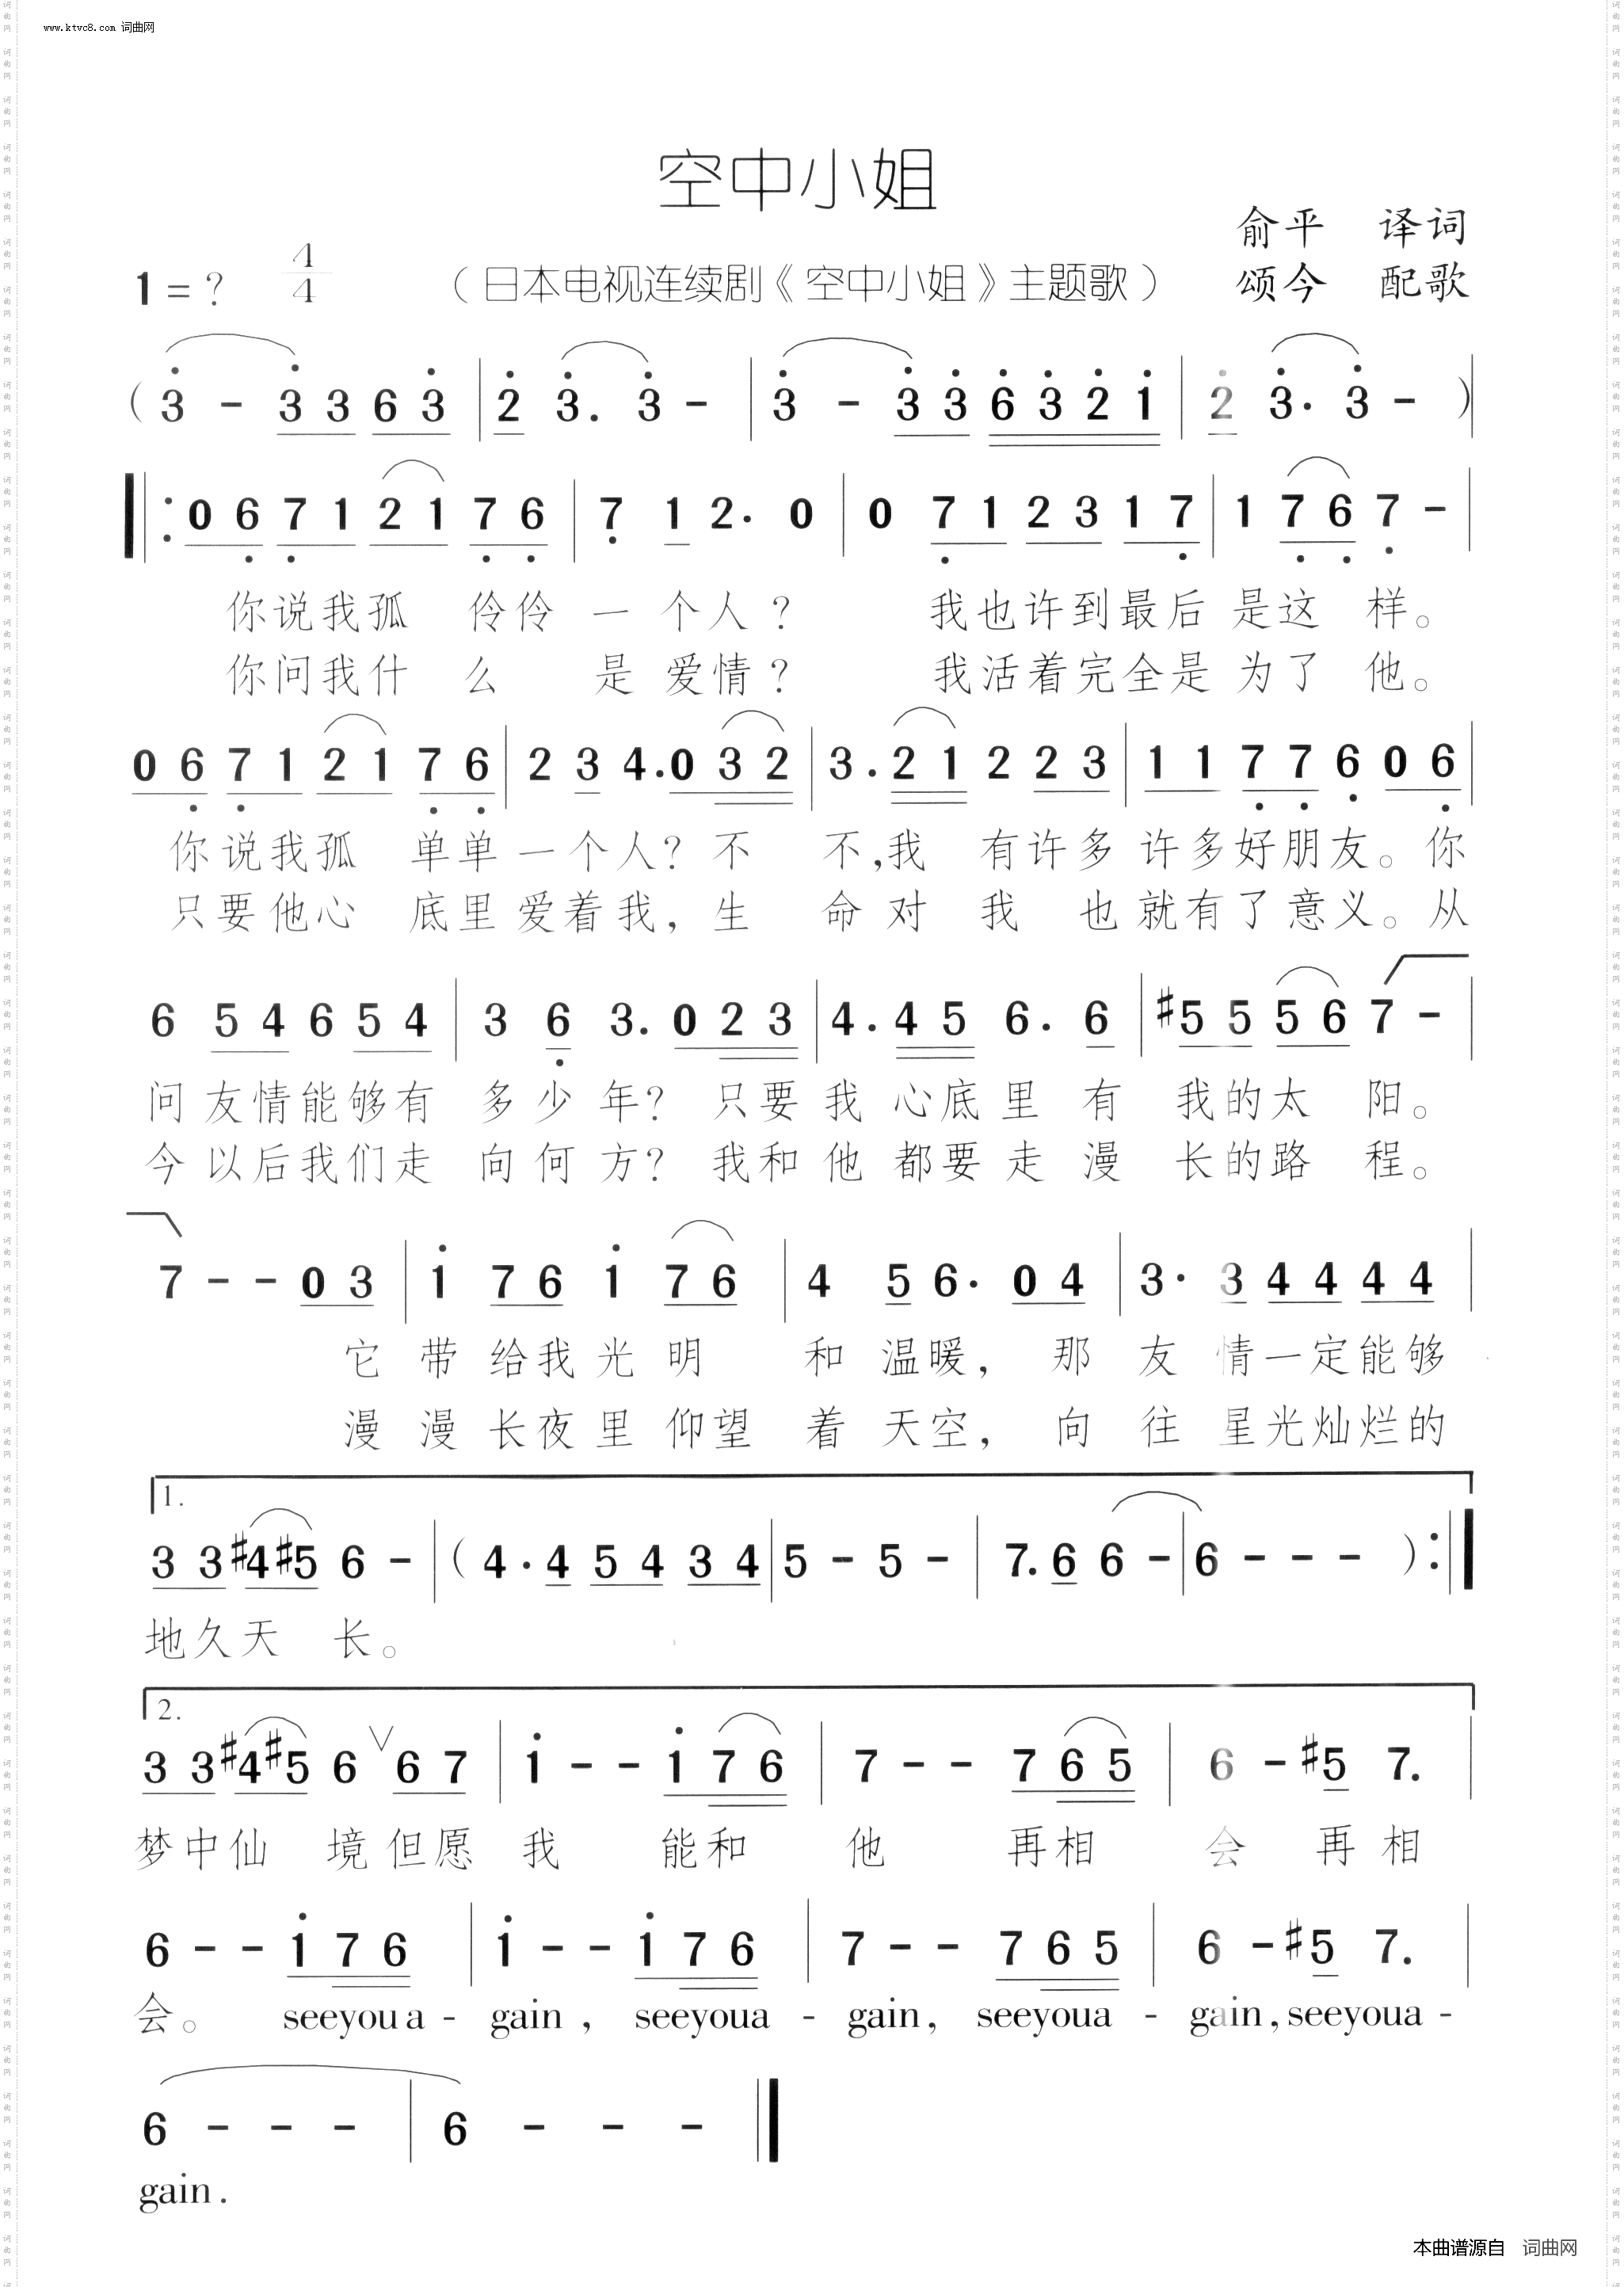 www.ktvc8.com 词曲网
空中小姐
俞平 译词
1=? 4/4 (日本电视连续剧《空中小姐》主题歌) 颂今 配歌
( 3 - 3 3 6 3 | 2 3. 3 - | 3 - 3 3 6 3 2 1 | 2 3. 3 - )
: 0 6 7 1 2 1 7 6 | 7 1 2. 0 | 0 7 1 2 3 1 7 | 1 7 6 7 - |
你说我孤 伶伶 一 个人? 我也许到最后 是这 样。
你问我什 么 是 爱情? 我活着完全是 为了 他。
0 6 7 1 2 1 7 6 | 2 3 4. 0 3 2 | 3. 2 1 2 2 3 | 1 1 7 7 6 0 6 |
你说我孤 单单 一个人? 不 不,我 有许多 许多好朋友。你
只要他心 底里 爱着我, 生 命 对 我 也 就有了意义。从
6 5 4 6 5 4 | 3 6 3. 0 2 3 | 4. 4 5 6. 6 | #5 5 5 6 7 - |
问 友情能够有 多少 年? 只要 我 心底 里 有 我的太 阳。
今 以后我们走 向何 方? 我和 他 都要 走 漫 长的路 程。
7 - - 0 3 | 1 7 6 1 7 6 | 4 5 6. 0 4 | 3. 3 4 4 4 4 |
它 带 给我 光 明 和 温暖, 那 友 情一定能够
漫 漫 长夜 里 仰望 着 天空, 向 往 星光灿烂的
1.
3 3 #4 #5 6 - | ( 4. 4 5 4 3 4 | 5 - 5 - | 7. 6 6 - | 6 - - - ) :
地久天 长。
2.
3 3 #4 #5 6 V 6 7 | 1 - - 1 7 6 | 7 - - 7 6 5 | 6 - #5 7. |
梦中仙 境但愿 我 能和 他 再相 会 再 相
6 - - 1 7 6 | 1 - - 1 7 6 | 7 - - 7 6 5 | 6 - #5 7. |
会。 seeyou a - gain , seeyoua - gain, seeyoua - gain, seeyoua -
6 - - - | 6 - - -
gain .
本曲谱源自 词曲网